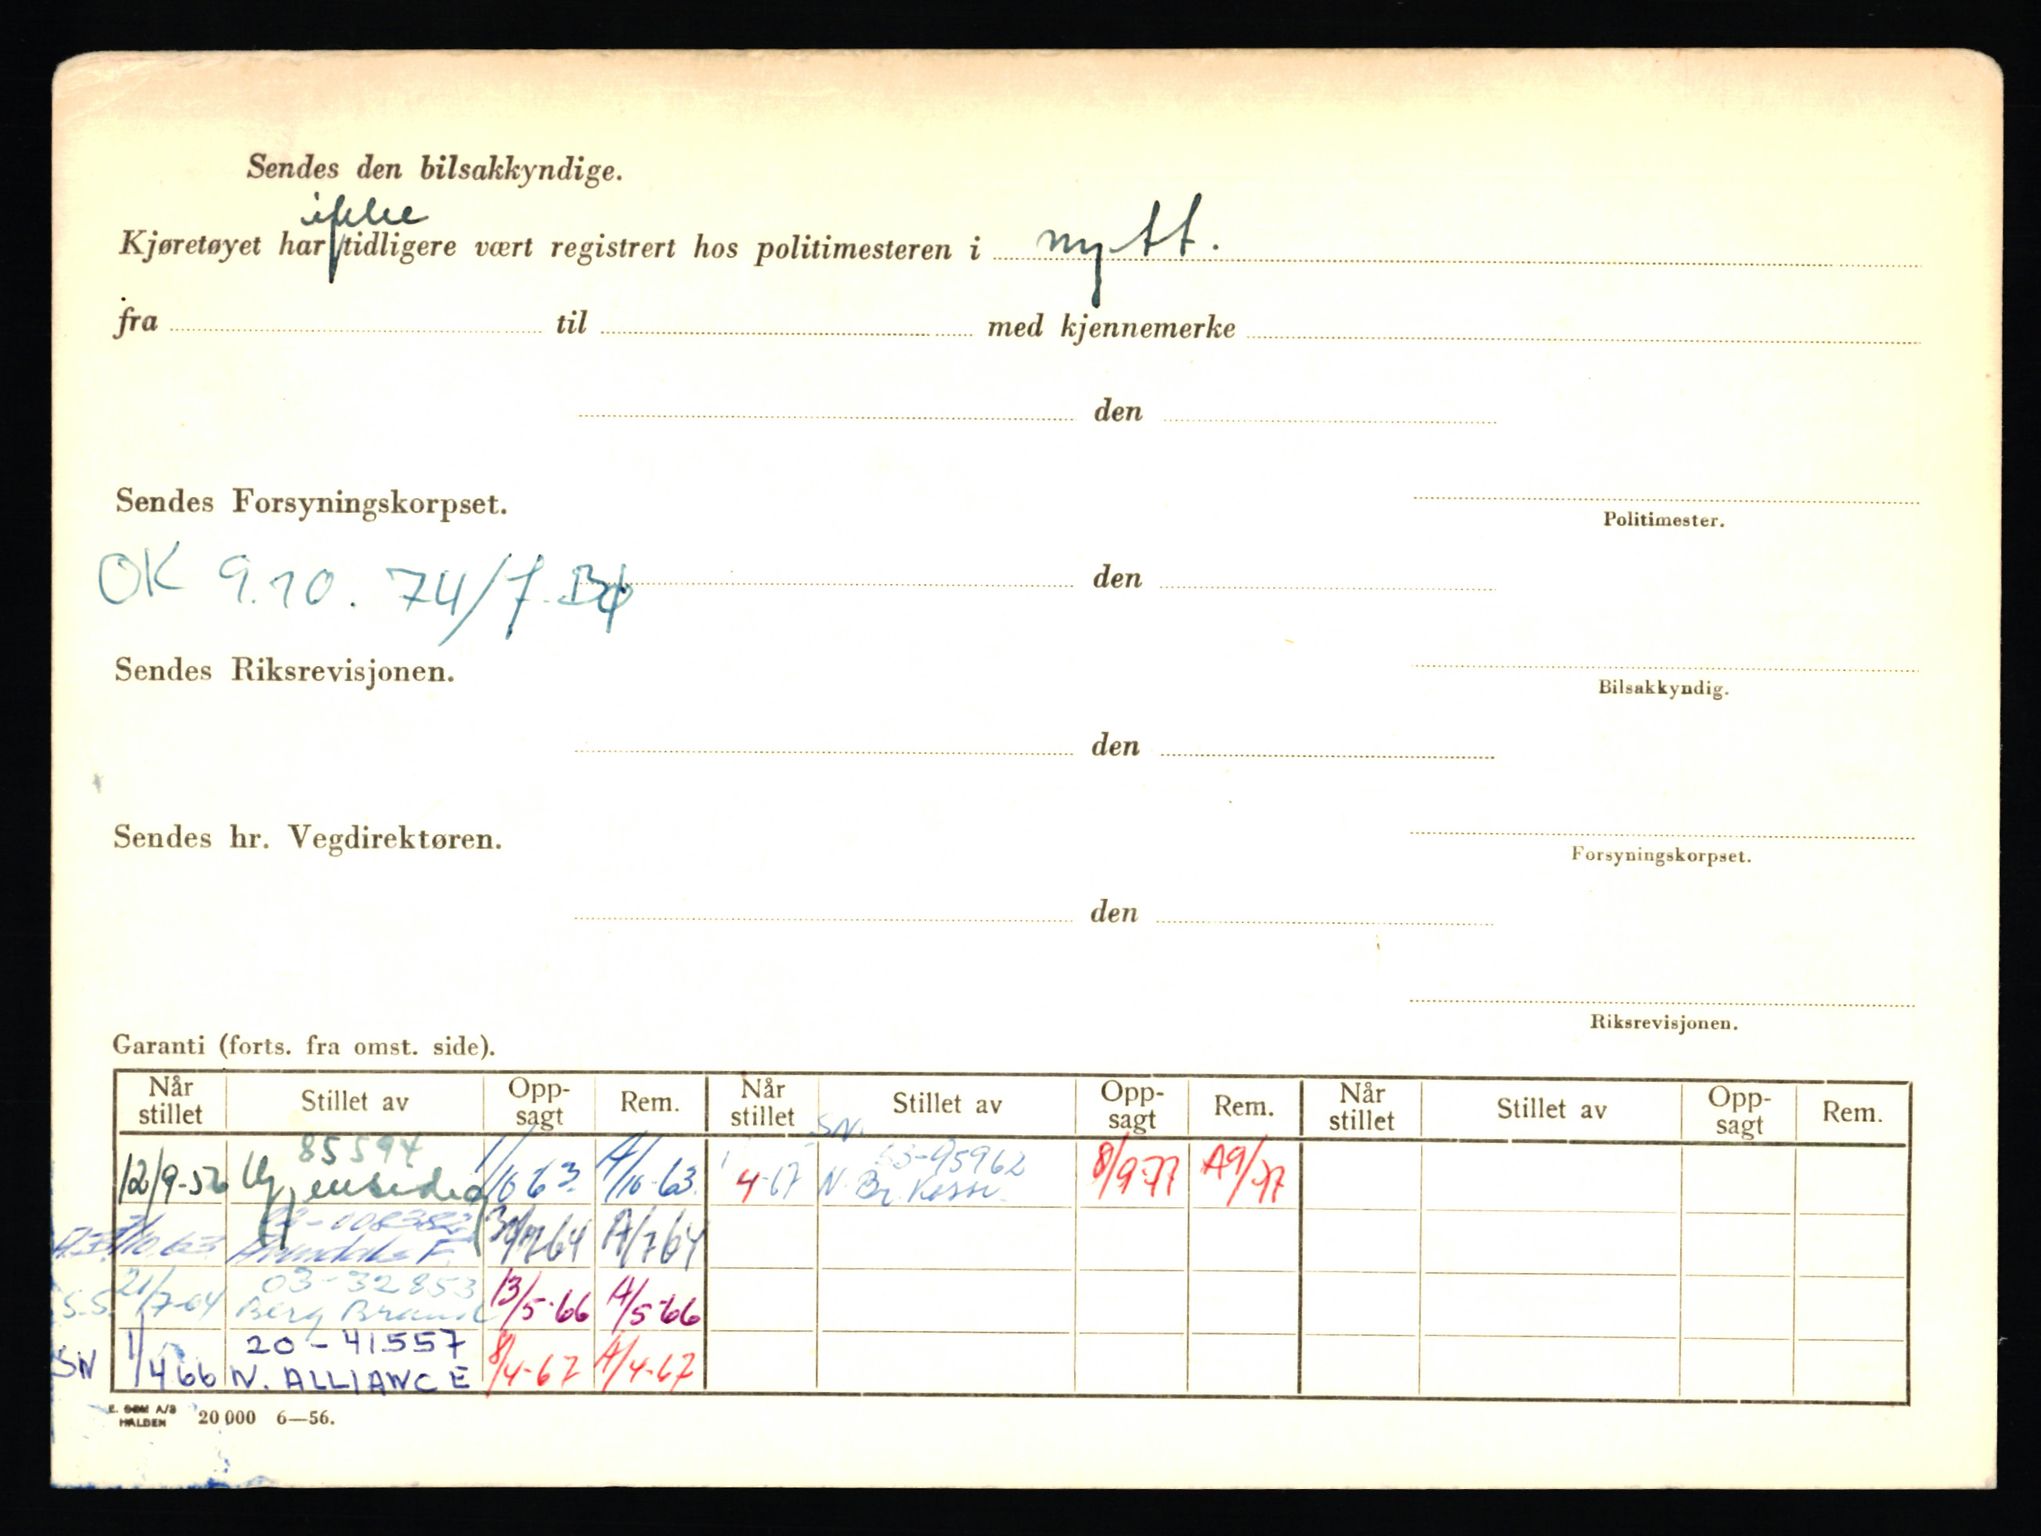 Sendes den bilsakkyndige.
ikke
Kjøretøyet har tidligere vært registrert hos politimesteren i nytt.
fra til med kjennemerke
den
Sendes Forsyningskorpset.
Politimester.
OK 9.10.74/
den
Sendes Riksrevisjonen.
Bilsakkyndig.
den
Sendes hr. Vegdirektøren.
Forsyningskorpset.
den
Riksrevisjonen.
Garanti (forts. fra omst. side).
Når stillet Stillet av Opp-sagt Rem. Når stillet Stillet av Opp-sagt Rem. Når stillet Stillet av Opp-sagt Rem.
85594 SN.
12/9-56 Gjensidig 1/10 63. A/10-63. 4-67 8/9-77 A9/77
A/7 64
03-32853
S.S. 21/7-64 Berg Brand 13/5-66 A/5-66
20-41557
SN 1/4 66 N. ALLIANCE 8/4-67 A/4-67
E. SEM A/S
HALDEN 20 000 6—56.